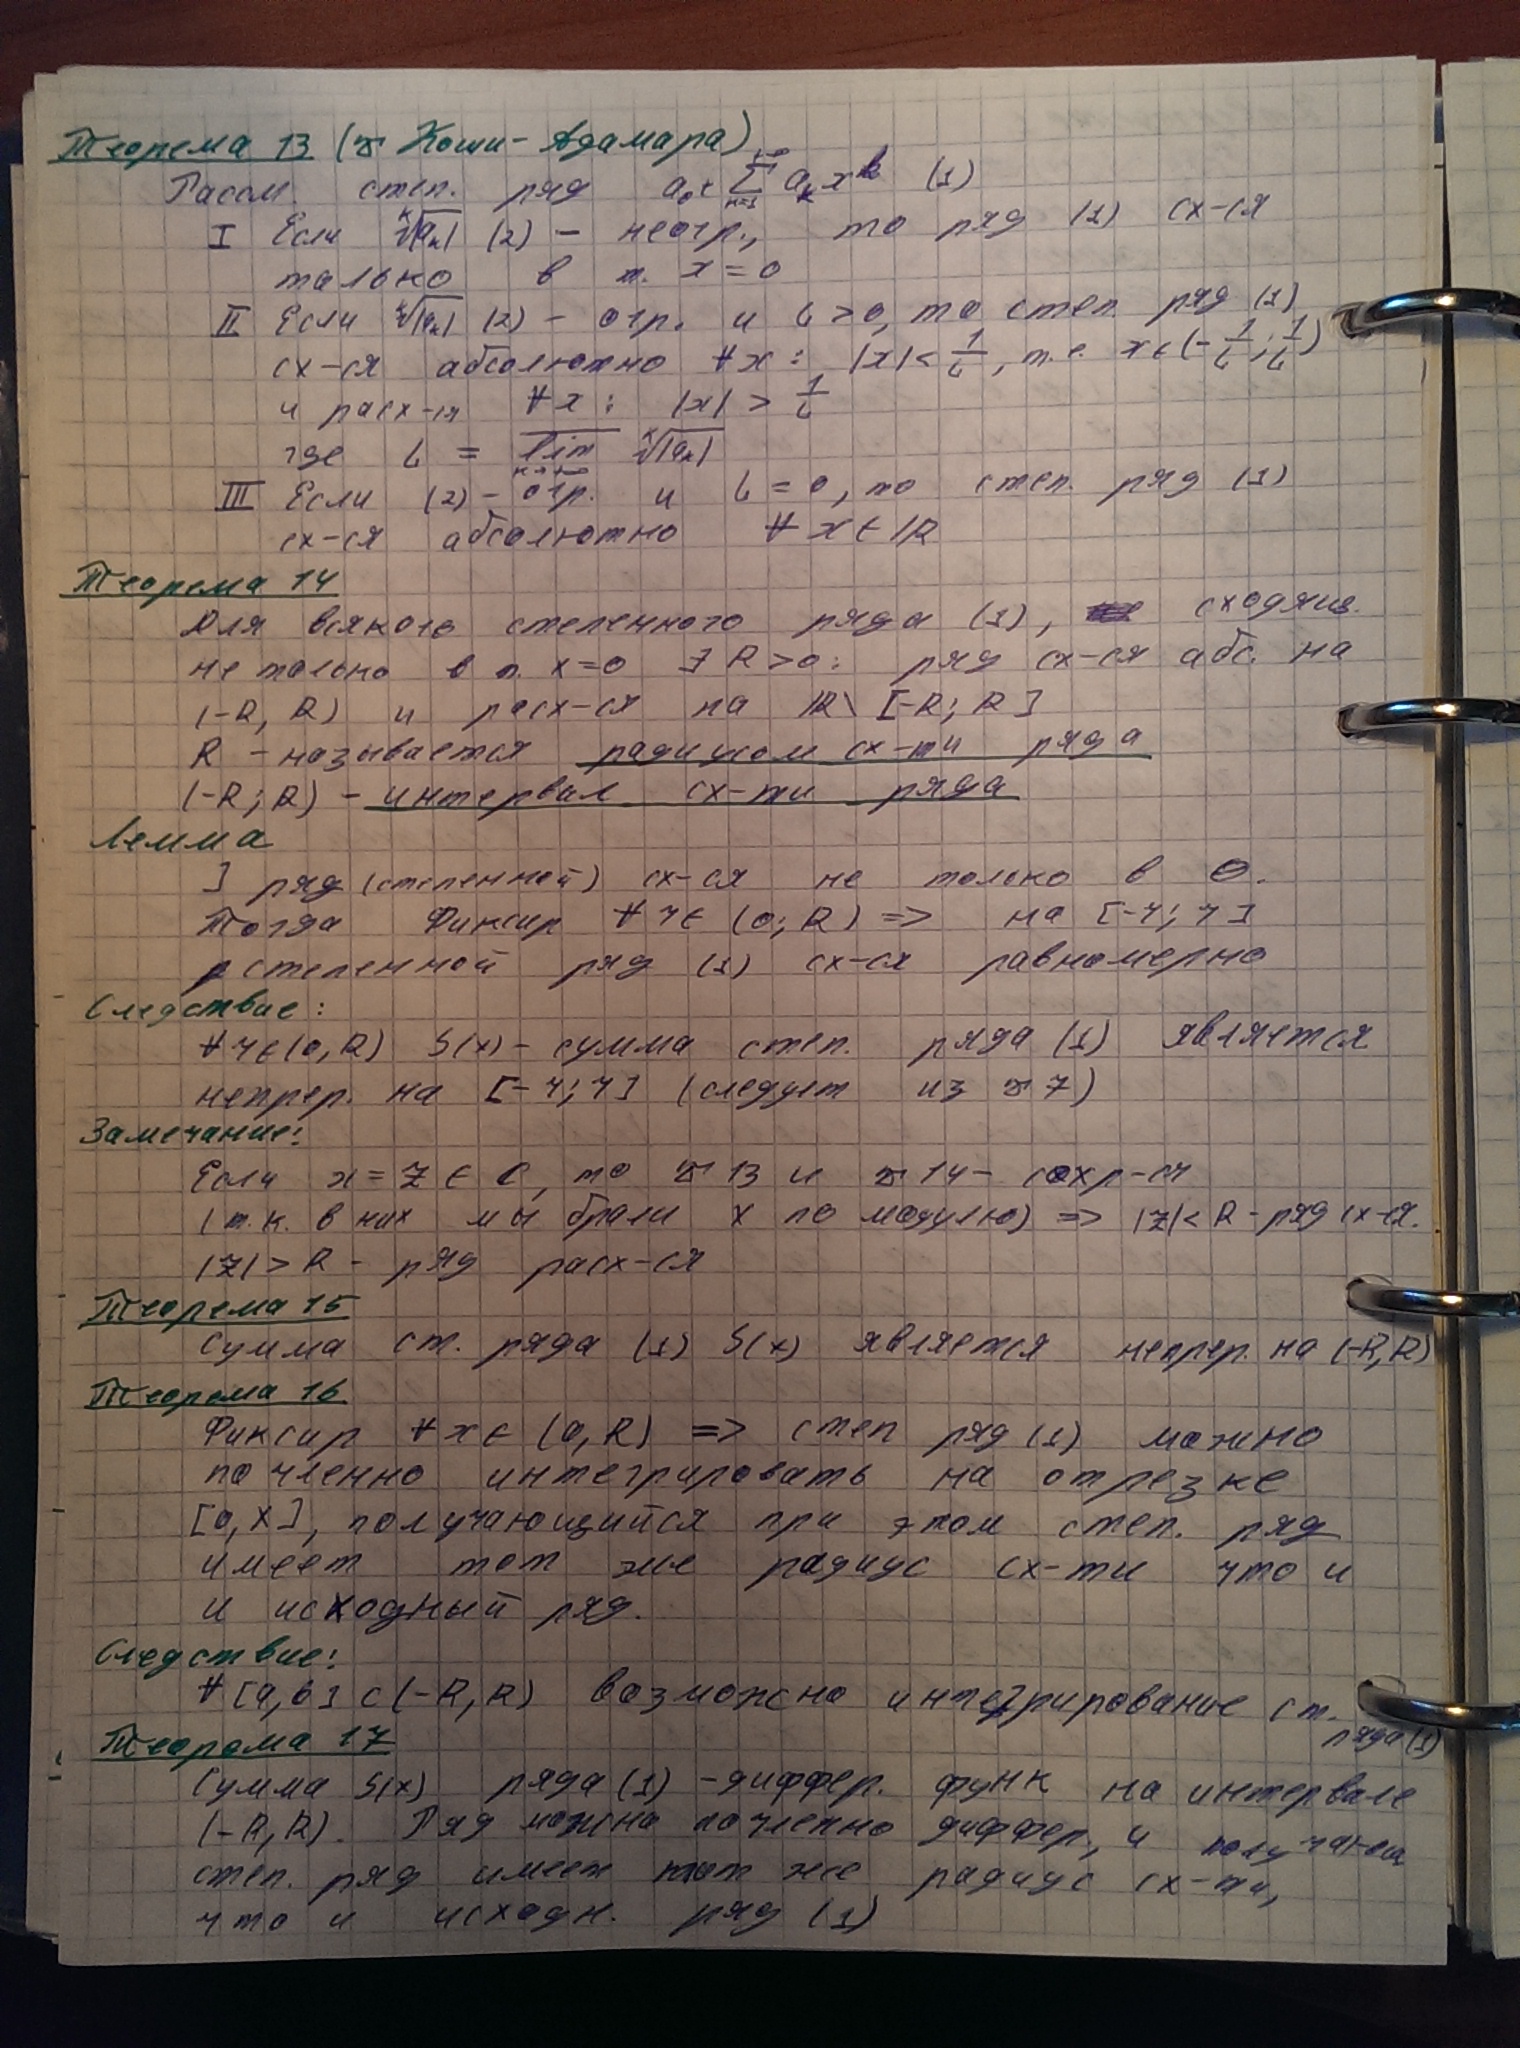 Теорема 13 (т Коши-Адамара)
Рассм. степ. ряд a₀ + ∑ₖ₌₁^∞ aₖ xᵏ (1)
I Если ᵏ√|aₖ| (2) - неогр., то ряд (1) сх-ся
только в т. x = 0
II Если ᵏ√|aₖ| (2) - огр. и L > 0, то степ. ряд (1)
сх-ся абсолютно ∀x : |x| < 1/L, т.е. x ∈ (-1/L; 1/L)
и расх-ся ∀x : |x| > 1/L
где L = lim ᵏ√|aₖ|
III Если (2) - огр. и L = 0, то степ. ряд (1)
сх-ся абсолютно ∀ x ∈ ℝ
Теорема 14
Для всякого степенного ряда (1), сходящ.
не только в т. x=0 ∃ R > 0: ряд сх-ся абс. на
(-R, R) и расх-ся на ℝ\ [-R; R]
R - называется радиусом сх-ти ряда
(-R; R) - интервал сх-ти ряда
Лемма
] ряд (степенной) сх-ся не только в 0.
Тогда Фиксир ∀ r ∈ (0; R) => на [-r; r]
степенной ряд (1) сх-ся равномерно
Следствие:
∀ r ∈ (0, R) S(x) - сумма степ. ряда (1) является
непрер. на [-r; r] (следует из т 7)
Замечание:
Если x = z ∈ C, то т 13 и т 14 - сохр-ся
(т.к. в них мы брали x по модулю) => |z| < R - ряд сх-ся.
|z| > R - ряд расх-ся
Теорема 15
Сумма ст. ряда (1) S(x) является непрер. на (-R, R)
Теорема 16
Фиксир ∀ x ∈ (0, R) => степ ряд (1) можно
почленно интегрировать на отрезке
[0, X], получающийся при этом степ. ряд
имеет тот же радиус сх-ти что и
и исходный ряд.
Следствие:
∀ [a, b] ⊂ (-R, R) возможно интегрирование ст.
ряда (1)
Теорема 17
Сумма S(x) ряда (1) - диффер. функ на интервале
(-R, R). Ряд можно почленно диффер., и
степ. ряд имеет тот же радиус сх-ти,
что и исходн. ряд (1)